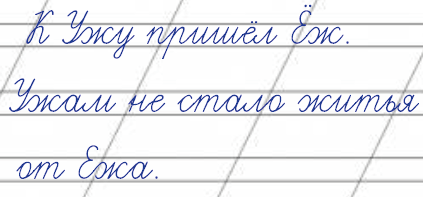 К Ужу пришёл Ёж.
Ужам не стало житья
от Ежа.